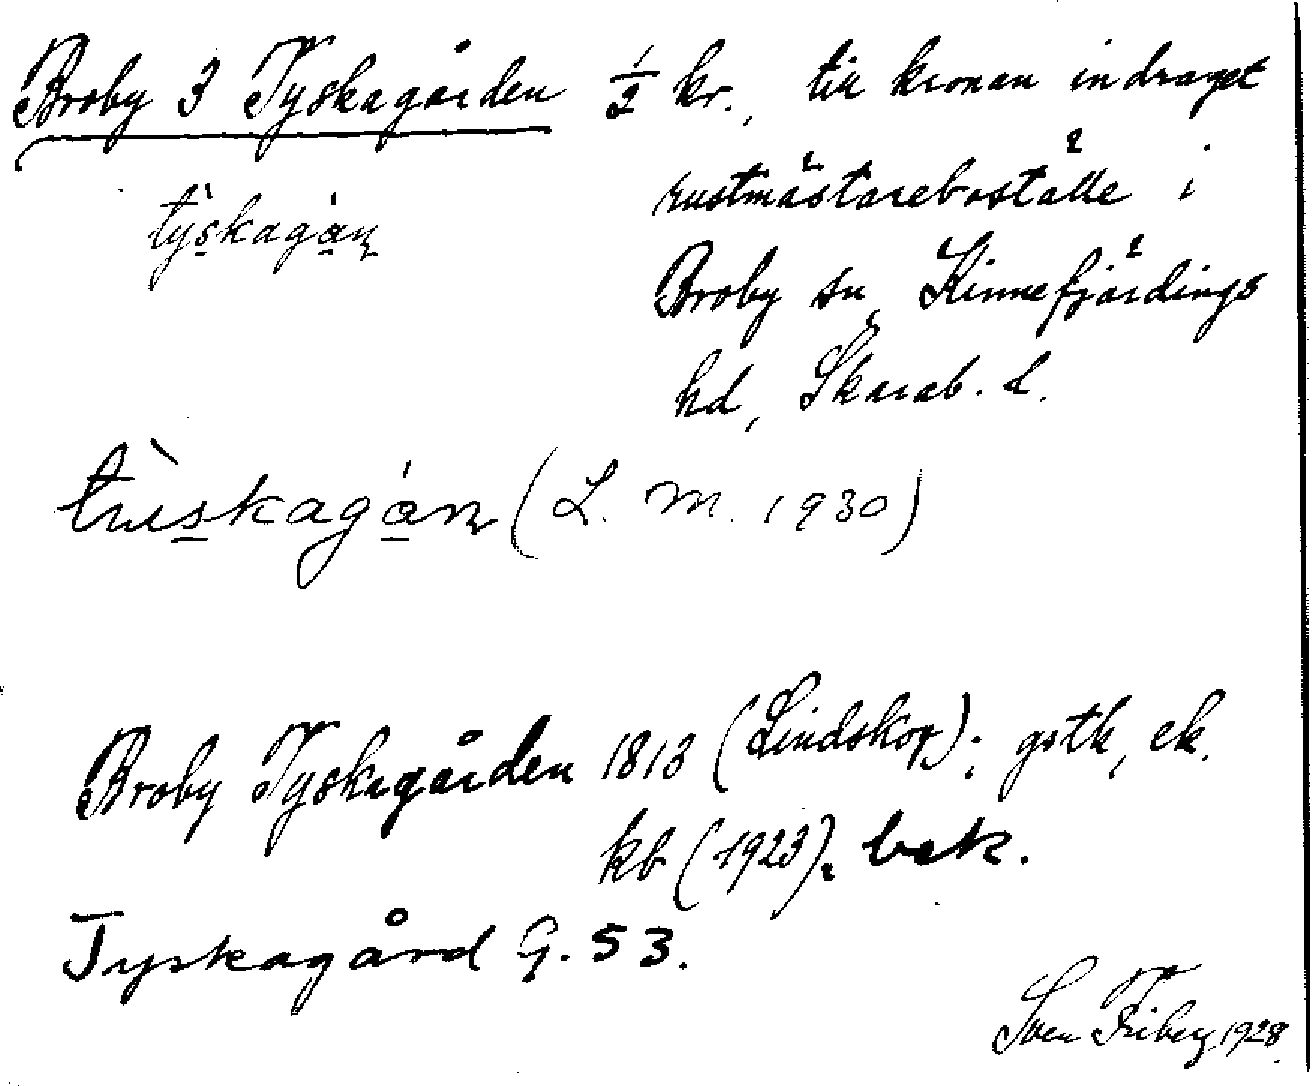 Broby 3 Tyskagården ½ kr., till kronan indraget
rustmästareboställe i
tyskagán
Broby sn, Kinnefjärdings
hd, Skarab. L.
tuskagán (L. M. 1930)
Broby Tyskagården 1813 (Lindskog); gotk, ek.
kb (1923).
Tyskagård G. 53.
Sven Friberg 1928